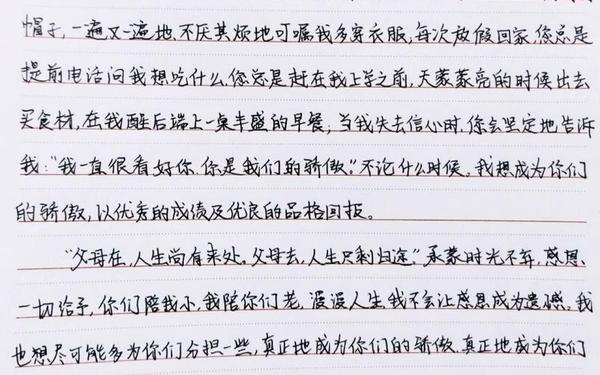 帽子,一遍又一遍地、不厌其烦地叮嘱我多穿衣服,每次放假回家,您总是
提前电话问我想吃什么,您总是赶在我上学之前,天蒙蒙亮的时候出去
买食材,在我醒后端上一桌丰盛的早餐;当我失去信心时,你会坚定地告诉
我:“我一直很看好你,你是我们的骄傲。”不论什么时候,我想成为你们
的骄傲,以优秀的成绩及优良的品格回报。
“父母在,人生尚有来处,父母去,人生只剩归途。”承蒙时光不弃,感恩
一切给予,你们陪我小,我陪你们老,漫漫人生,我不会让感恩成为遗憾。我
也想尽可能多为你们分担一些,真正地成为你们的骄傲,真正地成为你们